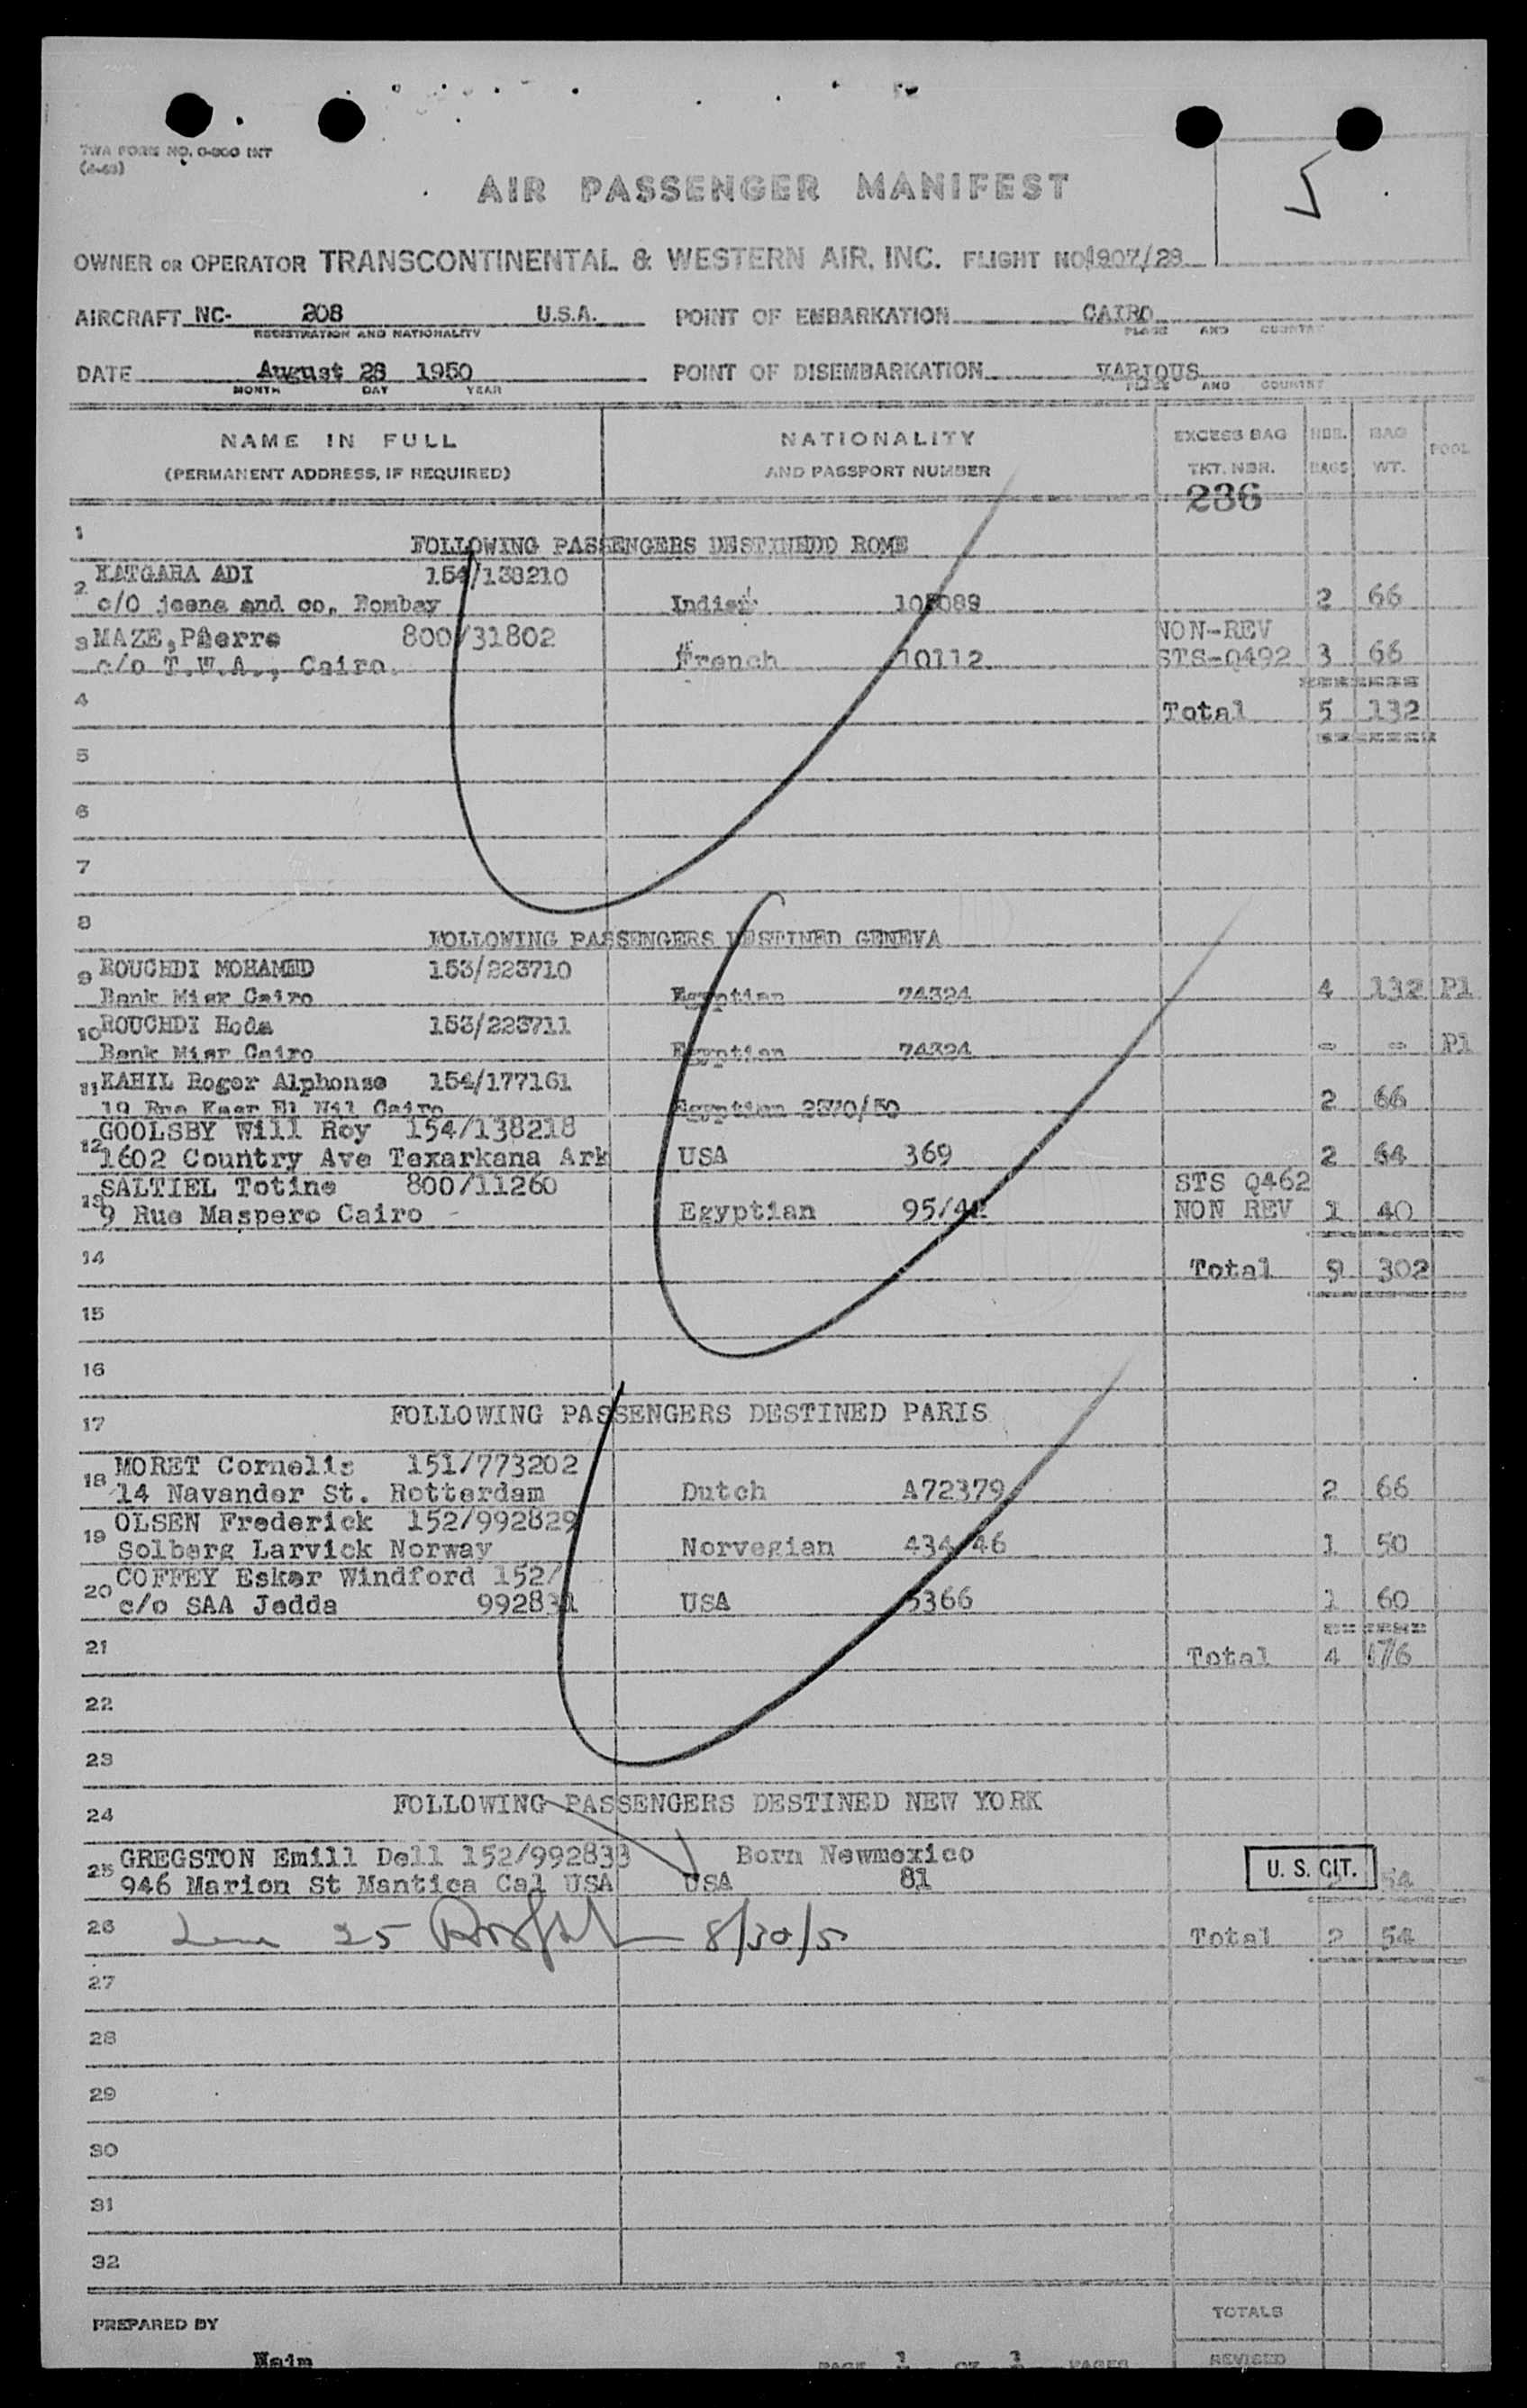 TWA FORM NO. O-800 INT
AIR PASSENGER MANIFEST
5
OWNER OR OPERATOR TRANSCONTINENTAL & WESTERN AIR, INC. FLIGHT NO. 907/28
AIRCRAFT NC- 208 U.S.A. POINT OF EMBARKATION CAIRO
REGISTRATION AND NATIONALITY PLACE AND COUNTRY
DATE August 28 1950 POINT OF DISEMBARKATION VARIOUS
MONTH DAY YEAR PLACE AND COUNTRY
NAME IN FULL NATIONALITY EXCESS BAG NBR. BAG POOL
(PERMANENT ADDRESS, IF REQUIRED) AND PASSPORT NUMBER TKT. NBR. BAGS WT.
236
1 FOLLOWING PASSENGERS DESTINEDD ROME
2 KATGARA ADI 154/138210
c/O jeena and co, Bombay Indien 105089 2 66
3 MAZE, Pierre 800/31802 NON-REV
c/o T.W.A., Cairo. French 10112 STS-Q492 3 66
4 Total 5 132
5
6
7
8 FOLLOWING PASSENGERS DESTINED GENEVA
9 ROUCHDI MOHAMED 153/223710
Bank Misr Cairo Egyptian 74324 4 132 P1
10 ROUCHDI Hoda 153/223711
Bank Misr Cairo Egyptian 74324 - - P1
11 KAHIL Roger Alphonse 154/177161
19 Rue Kasr El Nil Cairo Egyptian 2370/50 2 66
12 GOOLSBY Will Roy 154/138218
1602 Country Ave Texarkana Ark USA 369 2 64
13 SALTIEL Totine 800/11260 STS Q462
9 Rue Maspero Cairo Egyptian NON REV 1 40
14 Total 9 302
15
16
17 FOLLOWING PASSENGERS DESTINED PARIS
18 MORET Cornelis 151/773202
14 Navander St. Rotterdam Dutch A72379 2 66
19 OLSEN Frederick 152/992829
Solberg Larvick Norway Norvegian 434/46 1 50
20 COFFEY Esker Windford 152/
c/o SAA Jedda 992831 USA 5366 1 60
21 Total 4 176
22
23
24 FOLLOWING PASSENGERS DESTINED NEW YORK
25 GREGSTON Emill Dell 152/992833 Born Newmexico U. S. CIT.
946 Marion St Mantica Cal USA USA 81 54
26 Line 25 8/30/50 Total 2 54
27
28
29
30
31
32
TOTALS
PREPARED BY
Naim PAGE 1 OF 1 PAGES REVISED